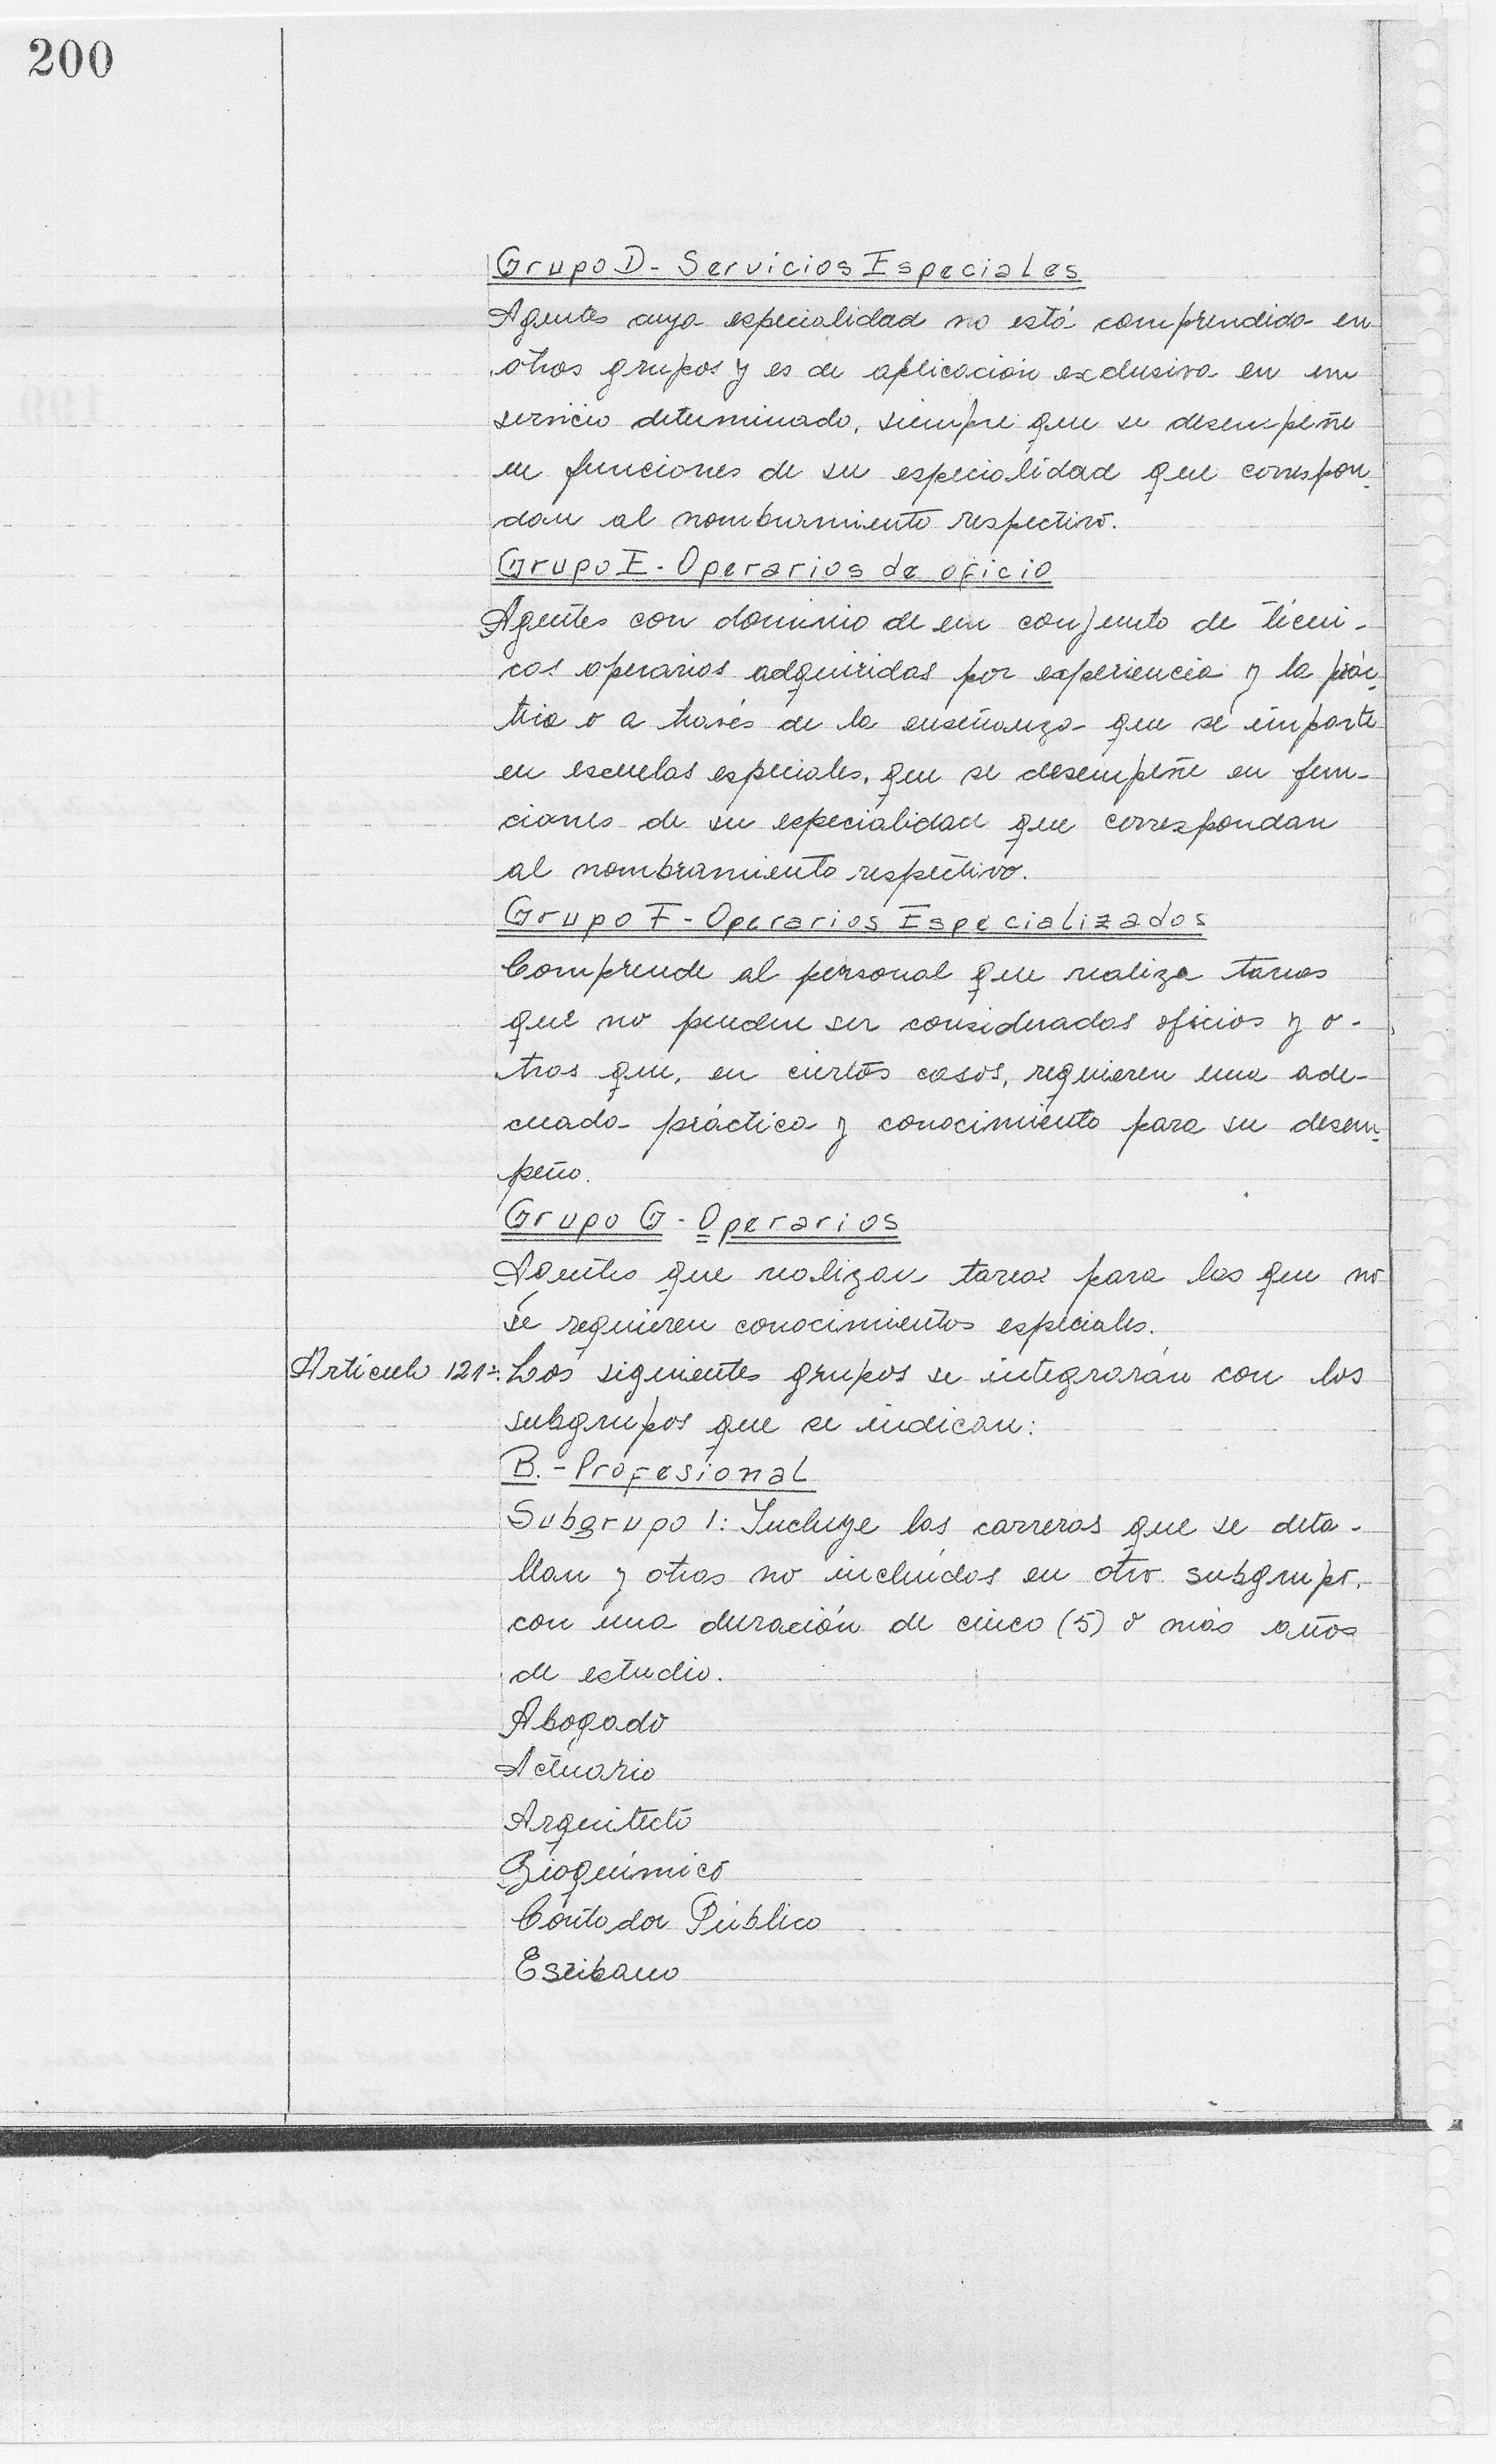 200
Grupo D - Servicios Especiales
Agentes cuya especialidad no está comprendida en
otros grupos y es de aplicación exclusiva en un
servicio determinado, siempre que se desempeñe
en funciones de su especialidad que correspon-
dan al nombramiento respectivo.
Grupo E - Operarios de oficio
Agentes con dominio de un conjunto de técni-
cas operarias adquiridas por experiencia y la prác-
tica o a través de la enseñanza que se imparte
en escuelas especiales, que se desempeñe en fun-
ciones de su especialidad que correspondan
al nombramiento respectivo.
Grupo F - Operarios Especializados
Comprende al personal que realiza tareas
que no pueden ser consideradas oficios y o-
tras que, en ciertos casos, requieren una ade-
cuada práctica y conocimiento para su desem-
peño.
Grupo G - Operarios
Agentes que realizan tareas para las que no
se requieren conocimientos especiales.
Artículo 121º: Los siguientes grupos se integrarán con los
subgrupos que se indican:
B. - Profesional
Subgrupo 1: Incluye las carreras que se deta-
llan y otras no incluídas en otro subgrupo,
con una duración de cinco (5) o más años
de estudio.
Abogado
Actuario
Arquitecto
Bioquímico
Contador Público
Escribano